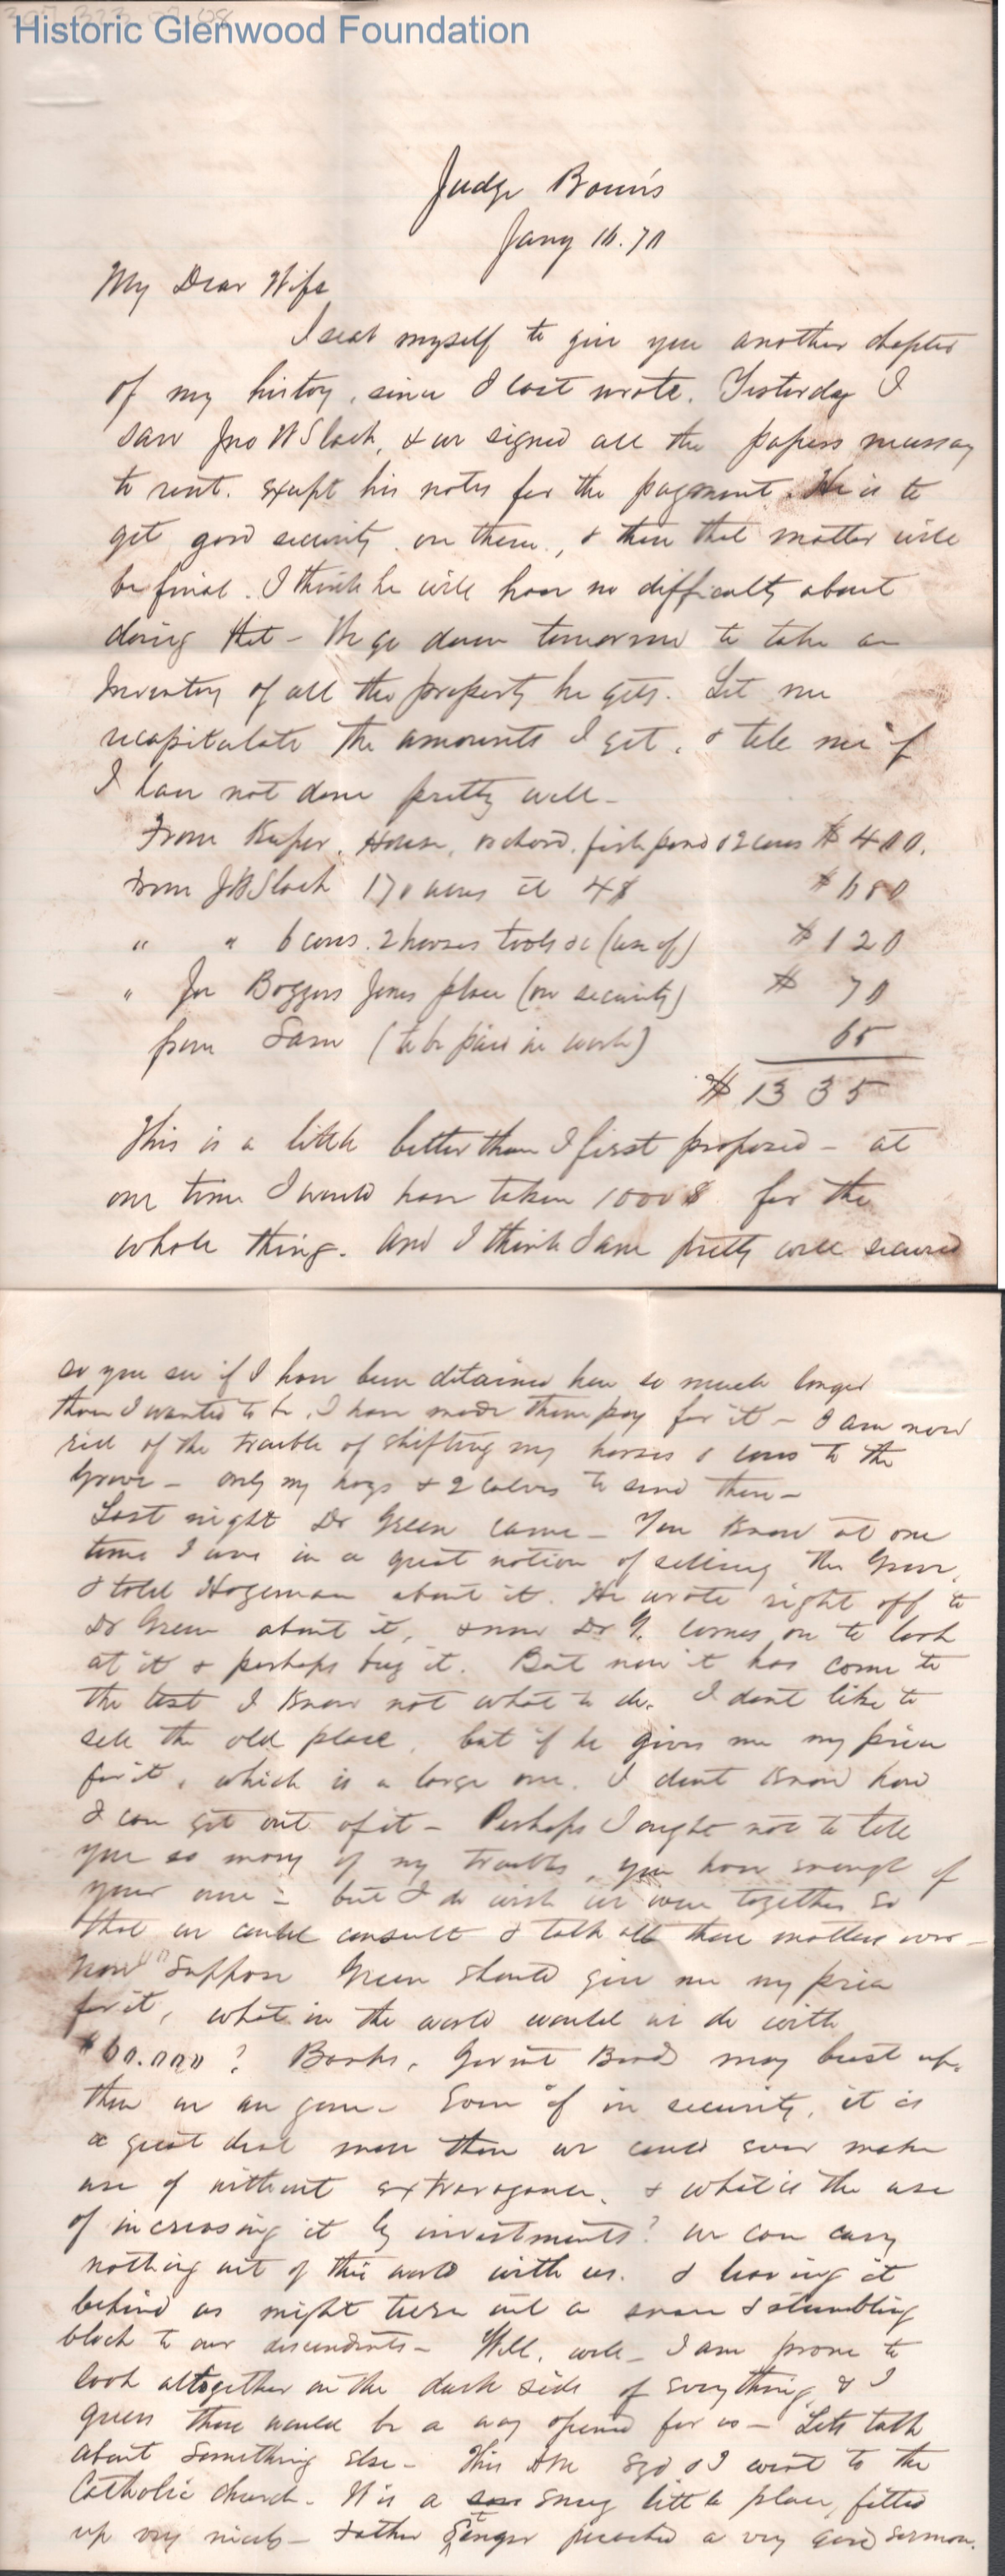 Historic Glenwood Foundation
Judge Bowie's
Jany 16. 70
My Dear Wife
I seat myself to give you another chapter
of my history, since I last wrote. Yesterday I
saw Jno W Slack, & we signed all the papers necessary
to rent. except his notes for the payment. He is to
get good security on them, & then that matter will
be final. I think he will have no difficulty about
doing that - We go down tomorrow to take an
Inventory of all the property he gets. Let me
recapitulate the amounts I get, & tell me if
I have not done pretty well -
From Keefer. House, orchard, fish pond 2 cows $ 400.
From J W Slack 170 acres at 4$ $ 680
" " 6 cows. 2 horses tools &c (use of) $ 120
" Jos Boggess Jones place (on security) $ 70
from Sam (to be paid in work) 65
$ 1335
This is a little better than I first proposed - at
one time I would have taken 1000$ for the
whole thing. And I think I am pretty well secured
so you see if I have been detained here so much longer
than I wanted to be, I have made them pay for it - I am now
rid of the trouble of shifting my horses & cows to the
Grove - only my hogs & 2 calves to send there -
Last night Dr Green came - You know at one
time I was in a great notion of selling the Grove,
& told Hageman about it. He wrote right off to
Dr Green about it, & now Dr G. comes on to look
at it & perhaps buy it. But now it has come to
the test I know not what to do. I dont like to
sell the old place, but if he gives me my price
for it, which is a large one. I dont know how
I can get out of it - Perhaps I ought not to tell
you so many of my troubles, you have enough of
your own - but I do wish we were together so
that we could consult & talk all these matters over -
Now suppose Green should give me my price
for it, what in the world would we do with
$60.000? Banks, Govmt Bonds may bust up,
then we are gone - Even if in security, it is
a great deal more than we could ever make
use of without extravagance, & what is the use
of increasing it by investments? We can carry
nothing out of this world with us. & leaving it
behind us might turn out a snare & stumbling
block to our descendents - Well, well - I am prone to
look altogether on the dark side of everything, & I
guess there would be a way opened for us - Lets talk
about something else - This AM & I went to the
Catholic church. It is a snug little place, fitted
up very nicely - Father preached a very good sermon.